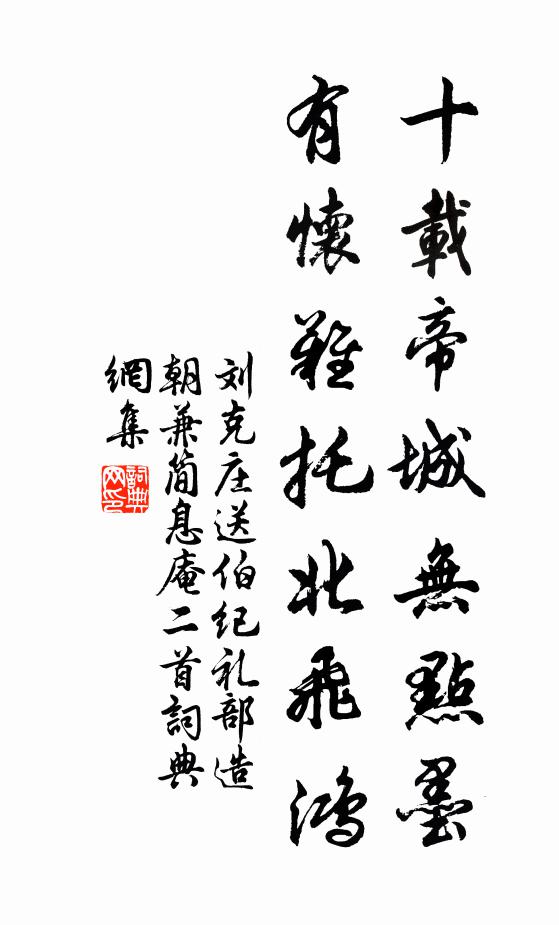 十載帝城無點墨
有懷難托北飛鴻
刘克庄送伯纪礼部造
朝兼简息庵二首詞典
網集
詞典網印